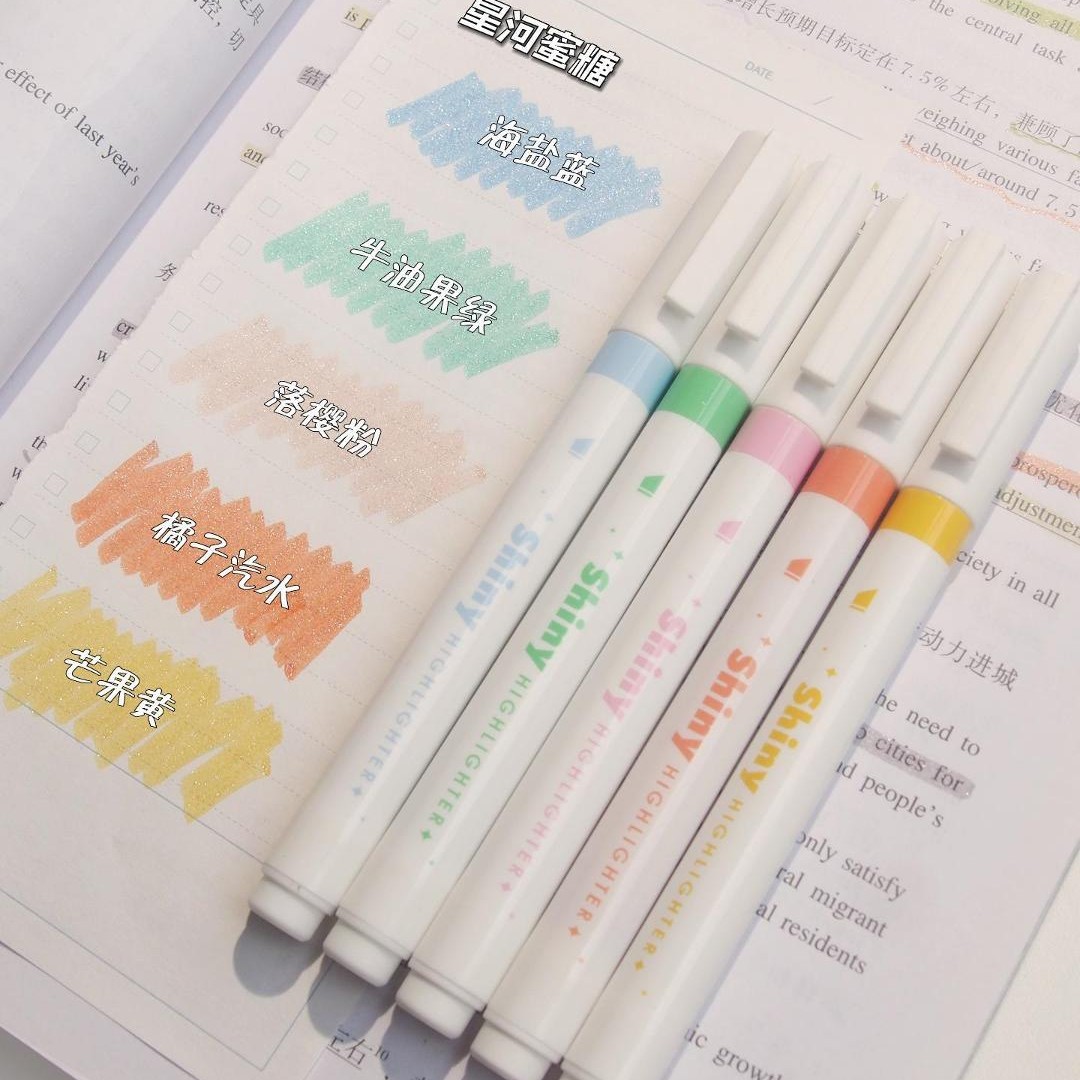 星河蜜糖
海盐蓝
牛油果绿
落樱粉
橘子汽水
芒果黄
DATE
Shiny HIGHLIGHTER
Shiny HIGHLIGHTER
Shiny HIGHLIGHTER
Shiny HIGHLIGHTER
Shiny HIGHLIGHTER
effect of last year's
olving all
the central task
增长预期目标定在7.5%左右，兼顾了
eighing various fa
about/around 7.5
prospero
adjustmen
ciety in all
动力进城
he need to
cities for
d people's
only satisfy
ral migrant
al residents
ic growth
左右